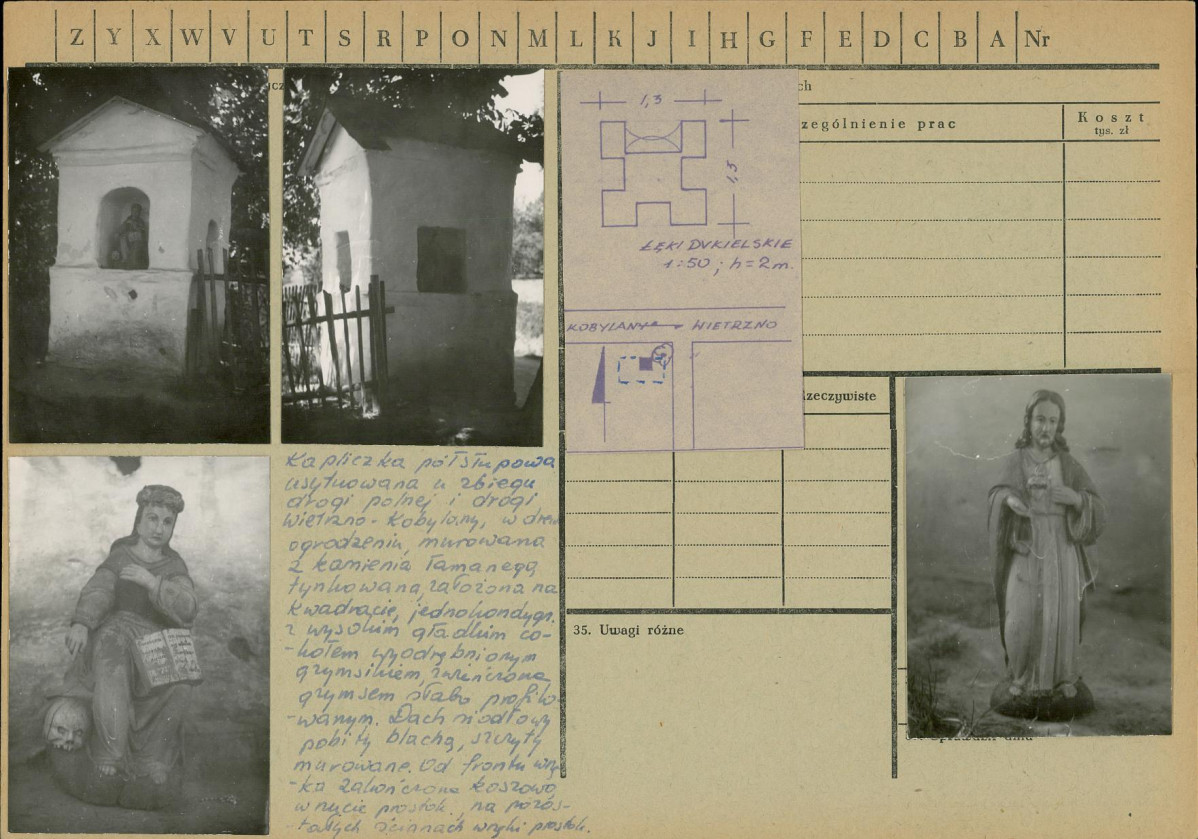 Z Y X W V U T S R P O N M L K J I H G F E D C B A Nr
ch
zególnienie prac
Koszt
tys. zł
1,3
1,3
ŁĘKI DUKIELSKIE
1:50 ; h=2m.
KOBYLANY WIETRZNO
Rzeczywiste
Kapliczka półsłupowa
usytuowana u zbiegu
drogi polnej i drogi
Wietrzno-Kobylany, w drew
ogrodzeniu, murowana
z kamienia łamanego
tynkowana, założona na
kwadracie, jednokondygn.
z wysokim gładkim co-
-kołem wyodrębnionym
gzymsikiem, zwieńczona
gzymsem słabo profilo-
-wanym. Dach siodłowy
pobity blachą, szczyty
murowane. Od frontu wnę-
-ka zakończona koszowo
w rzucie prostok., na pozos-
-tałych ścianach wnęki prostok.
35. Uwagi różne